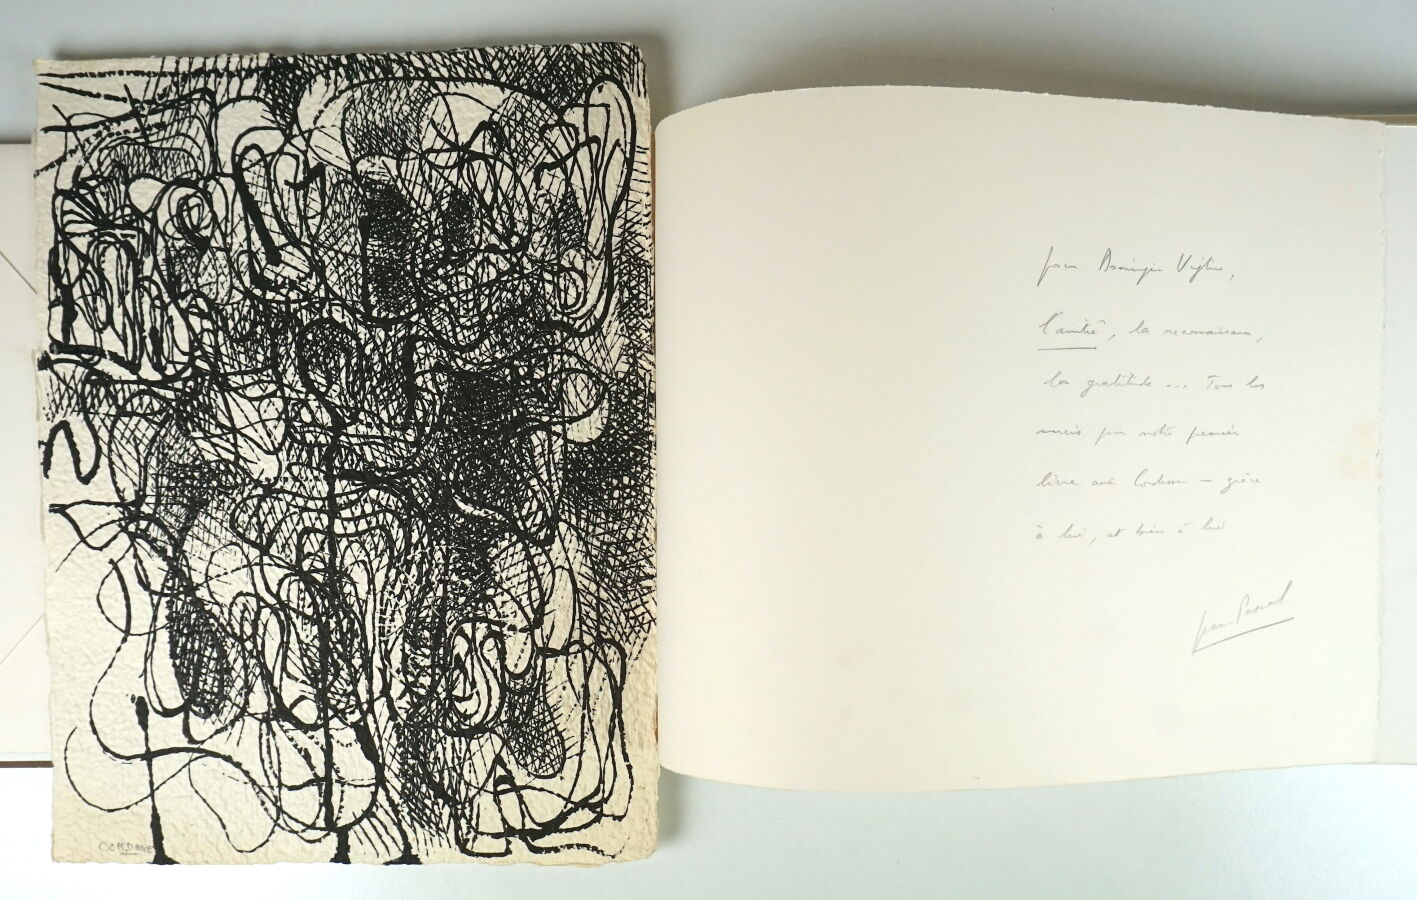 CORDESSE
pour Dominique Viglino,
l'amitié, la reconnaissance,
la gratitude ... Tous les
mercis pour notre premier
livre avec Cordesse — grâce
à lui, et bien à lui
Jean-Pascal